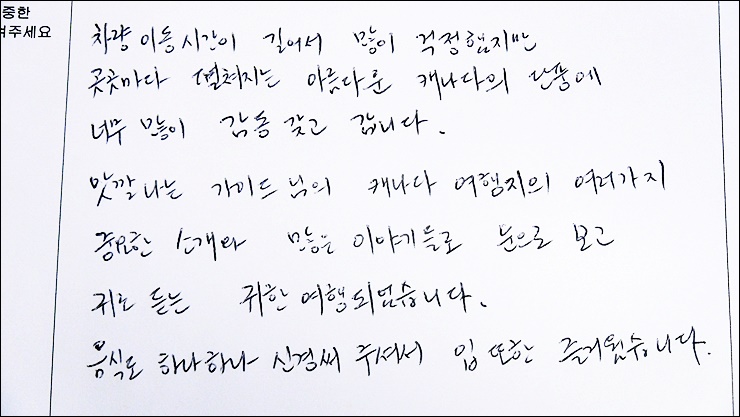 중한
겨주세요
차량 이동시간이 길어서 많이 걱정했지만
곳곳마다 펼쳐지는 아름다운 캐나다의 단풍에
너무 많이 감동 갖고 갑니다.
맛깔나는 가이드님의 캐나다 여행지의 여러가지
중요한 소개와 많은 이야기들로 눈으로 보고
귀로 듣는 귀한 여행되었습니다.
음식도 하나하나 신경써 주셔서 입 또한 즐거웠습니다.